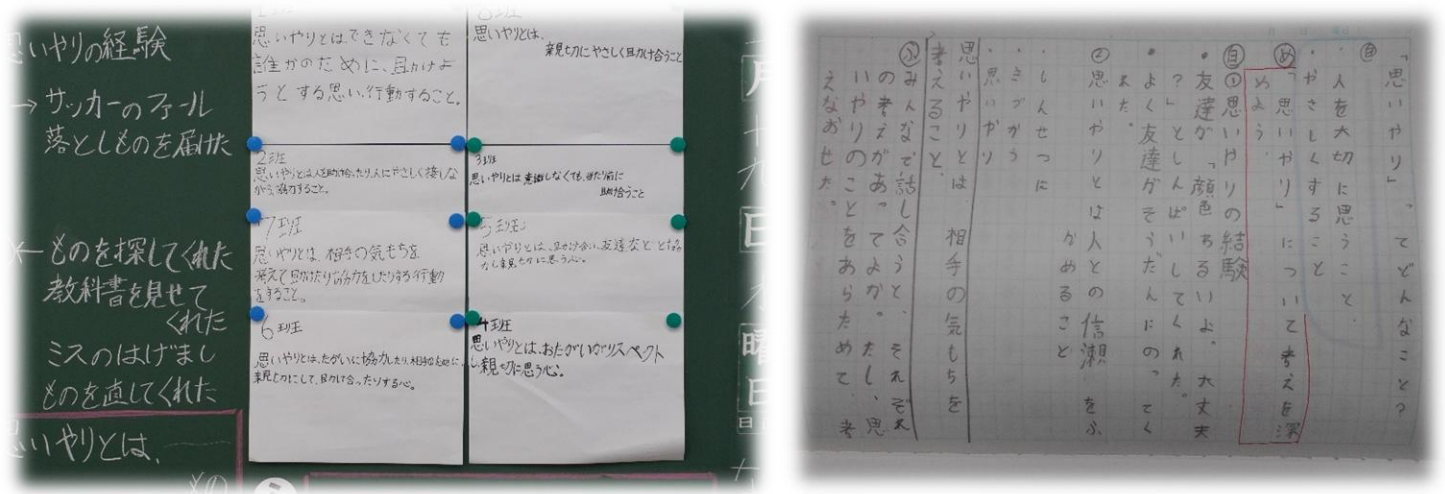 思いやりの経験
→ サッカーのファール
落としものを届けた
← ものを探してくれた
教科書を見せて
くれた
ミスのはげまし
ものを直してくれた
思いやりとは、
もの
思いやりとはできなくても
誰かのために、助けよ
うとする思い、行動すること。
2班
思いやりとは人を助け合ったり、人にやさしく接しな
がら、協力すること。
7班
思いやりとは、相手の気もちを
考えて助けたり協力をしたりする行動
をすること。
6班
思いやりとは、たがいに協力したり、相手のために、
親切にして、助け合ったりする心。
8班
思いやりとは、
親切にやさしく助け合うこと
3班
思いやりとは意識しなくても、当たり前に
助け合うこと
5班
思いやりとは、助け合い、友達など
親切に思う心。
4班
思いやりとは、おたがいがリスペクトし
親切に思う心。
月
十
九
日
水
曜
日
日
「思いやり」ってどんなこと?
自
・人を大切に思うこと、
・やさしくすること
め「思いやり」について考えを深
めよう。
自①思いやりの経験
・友達が「顔色わるいよ。大丈夫
?」としんぱいしてくれた。
・よく友達がそうだんにのってく
れた。
②思いやりとは人との信瀬をふ
かめること
・しんせつに
・きづかう
・思いやり
思いやりとは 相手の気もちを
考えること、
ふみんなで話し合うと、それぞれ
の考えがあってよかったし、思
いやりのことをあらためて、考
えなおせた。